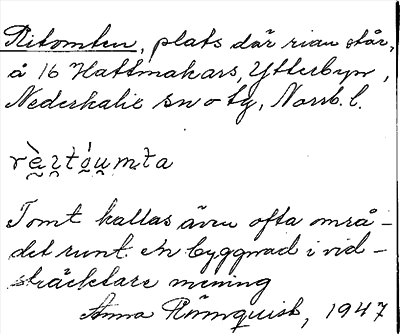 Ritomten, plats där rian står,
å 16 Hattmakars, Ytterbyn,
Nederkalix sn o tg, Norrb. l.
rè̬ztó̬u̬mta
Tomt kallas även ofta områ-
det runt en byggnad i vid-
sträcktare mening
Anna Rönnquist, 1947